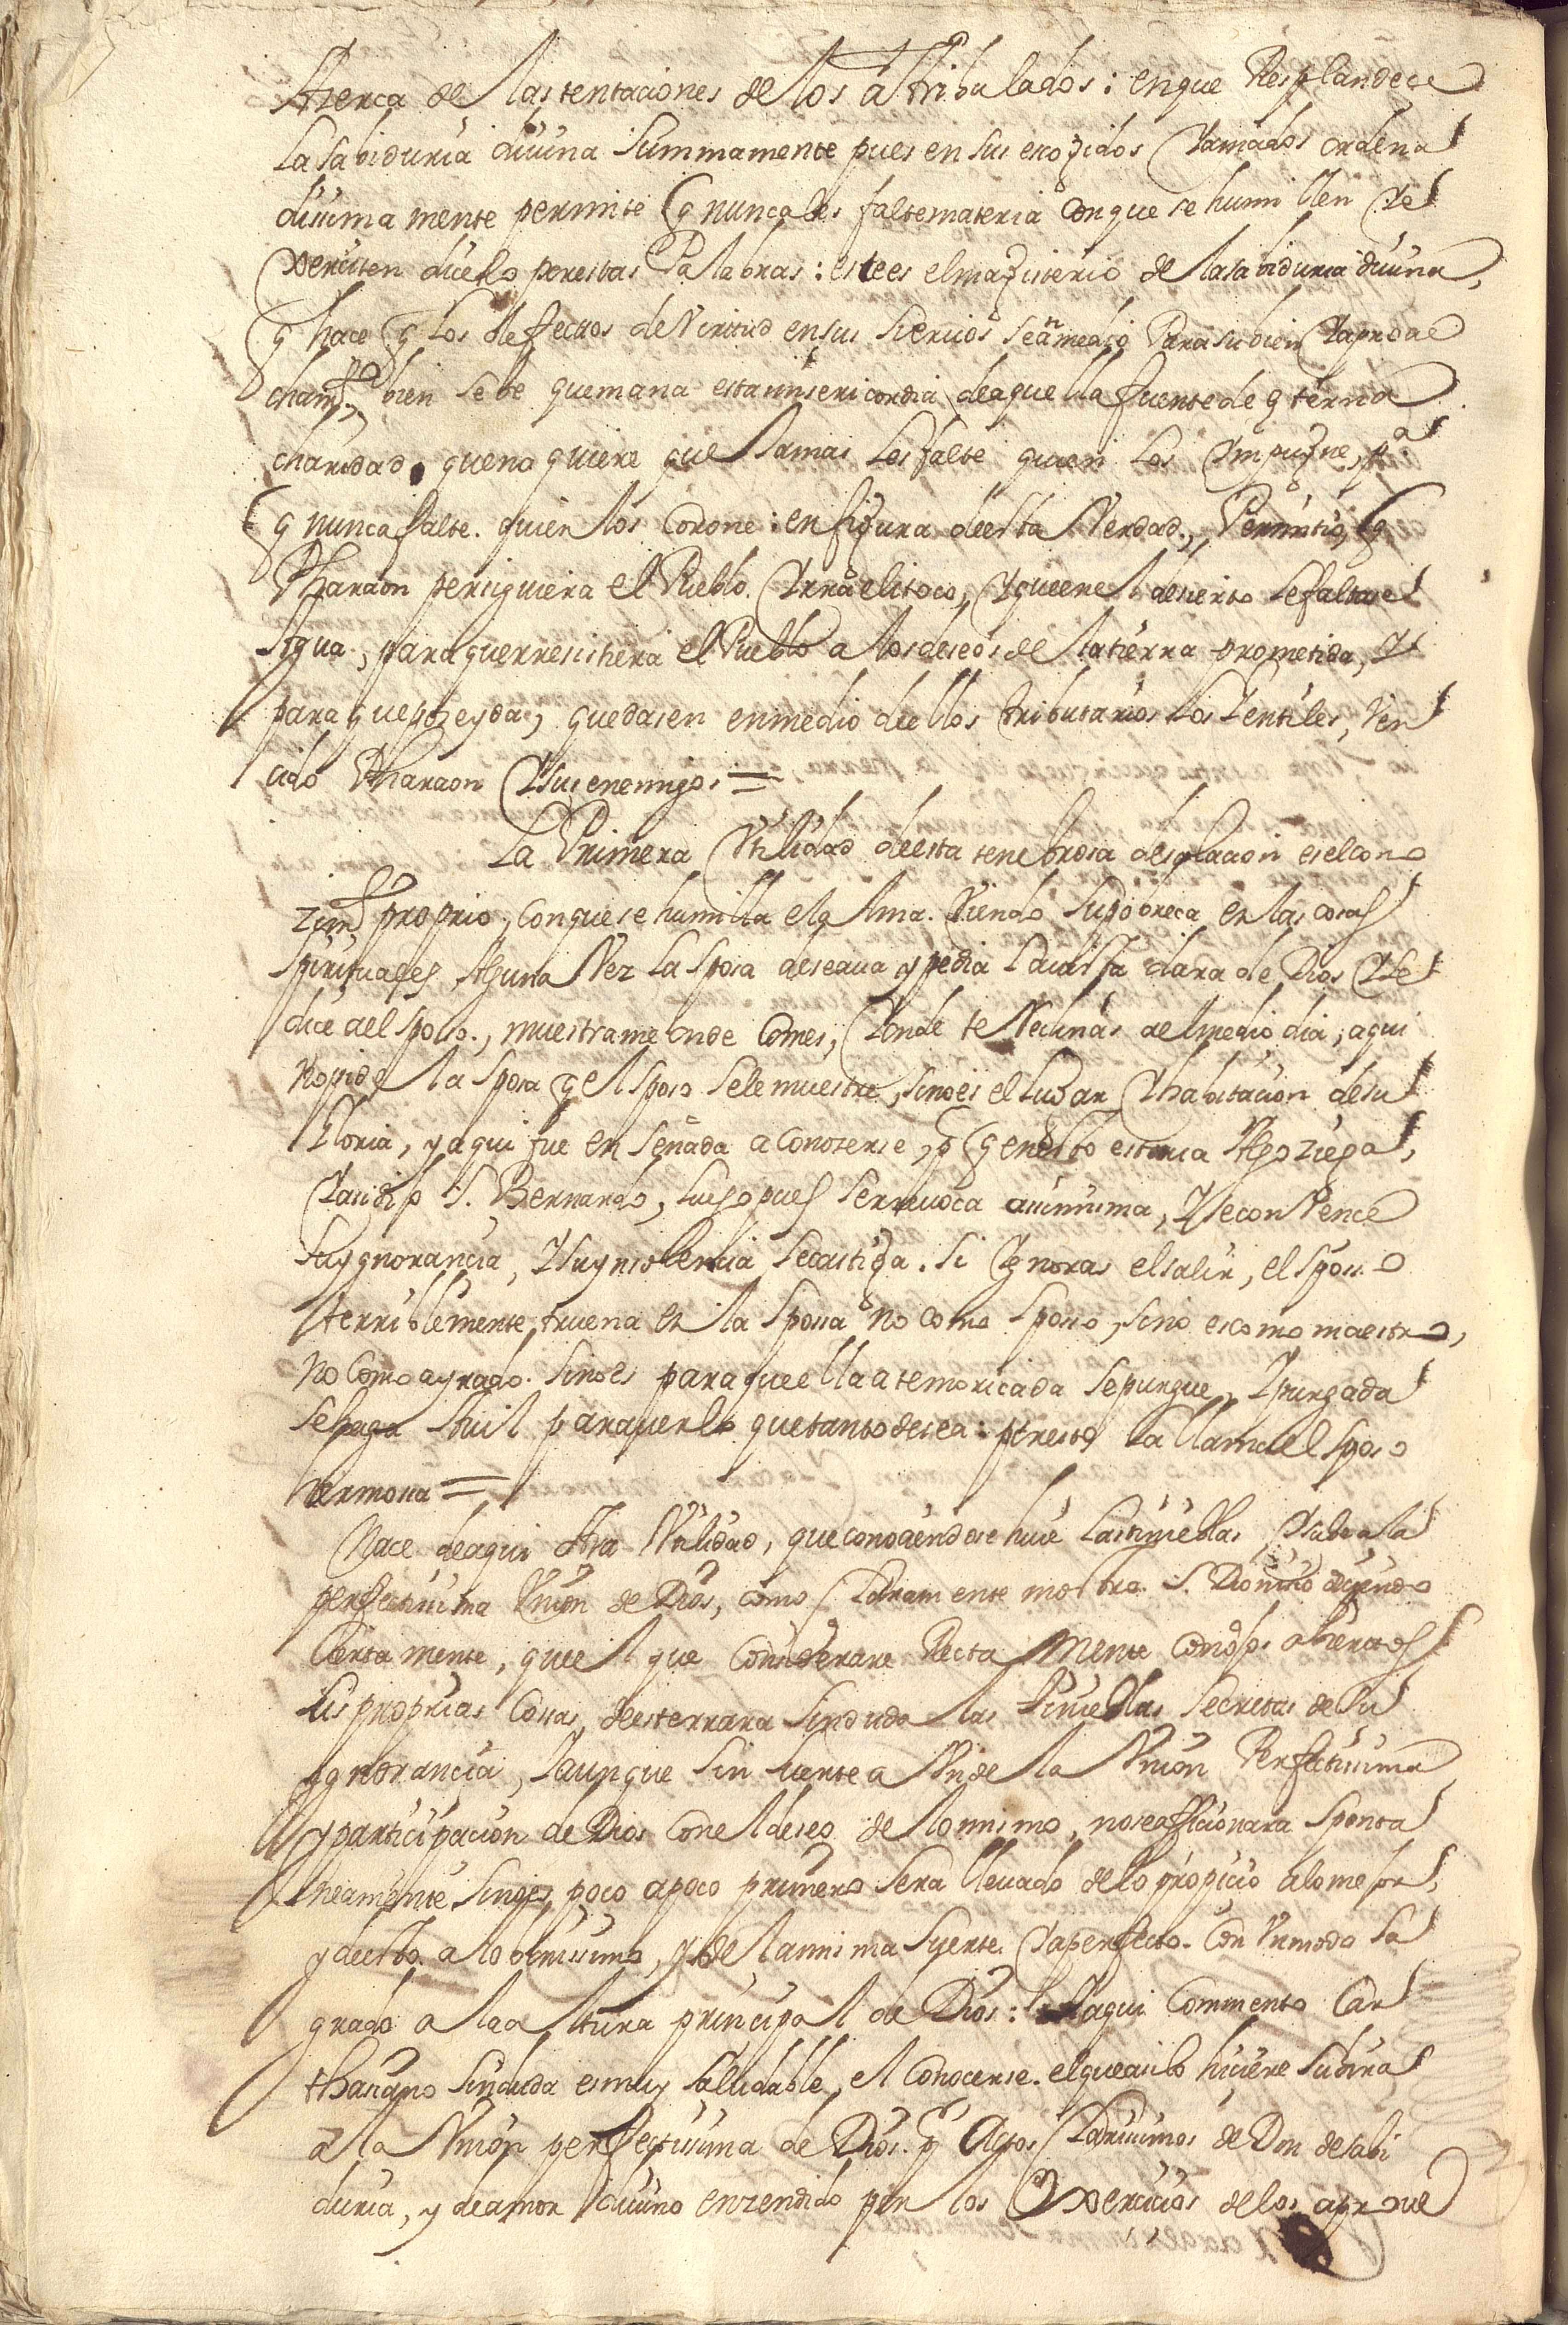 Aserca de las tentaciones de los atribulados: en que Resplandece
La sabiduria diuina summamente pues en sus escogidos Yamados ordena
diuinamente permite q nunca les falte materia con que se humillen Yse
Exerciten dicelo por estas Palabras: este es el magisterio de la sabiduria diuina,
q hace q Los defectos de Virttud en sus Sieruos sean medio Para su bien Yaproue
cham.to, bien se ve que mana esta misericordia de aquella fuente de eterna
charidad, que no quiere que Jamas Les falte quien Los Ympugne, p.a
q nunca falte quien los Corone: en figura de esta Verdad, Permitio, q
Pharaon persiguiera el Pueblo Ysrraelitico, Yque en el desierto le faltase
Agua, para que rresistiera el Pueblo a los deseos de la tierra prometida, Y
para que, quedasen en medio de ellos tributarios Los Gentiles, Ven
cido Pharaon Y sus enemigos =
La Primera Vtilidad de esta tenebrosa desolacion es el cono
zim.to proprio, Con que se humilla el Alma. Viendo su pobreca en las cosas
Spirituales Alguna Vez La Sposa deseaua y pedia La vista clara de Dios Yle
dice al sposo, muestrame onde Comes, Yonde te Reclinas al medio dia, aqui
No pide la Sposa q el Sposo se le muestre, sino es el Lugar Yhabitacion de su
Gloria, y aqui fue enseñada a Conoserse, p q en esto estaua Algo ziega,
Yasi dijo S. Bernardo, Luego pues Se rreuoca assi misma, Yse conVence
su ygnorancia, Ysu ynsolencia Se castiga. Si Ygnoras el salir, el Sposso
terriblemente truena en la Spossa no como Sposso, sino es como maestro,
No Como ayrado. Sino es para que ella atemoricada Se purgue, Ypurgada
Se haga Avil para ver lo que tanto desea: por esto La llama el Sposo
hermosa =
Nace de aqui otra Vtilidad, que conociendose huie Las tinieblas, Ysube a la
perfectissima Vnion de Dios, como Claramente mostro S. Dionisio diciendo
Ciertamente, que el que Considerare Rectamente Con ojos abiertos
sus proprias Cossas, desterrara Sin duda las tinieblas Secretas de Su
ygnorancia, Yaunque Sin la Vnion Perfectissima
y participacion de Dios Con el deseo de lo mismo, no se afficionara Sponta
neamente Sino es, poco a poco primero Sera lleuado de lo propicio a lo mejor,
y de esto a lo bonissimo, y de la misma Suerte Yaperfecto. Con Vn modo Sa
grado a la altura principal de Dios: Yaqui Commento Car
thusano sin duda es muy Saludable, el Conocerse. el que assi lo hiciere Subira
a la Vnion perfectissima de Dios. p Actos Clarissimos de Don de sabi
duria, y de amor diuino enzendido por los Exercicios de los aproue